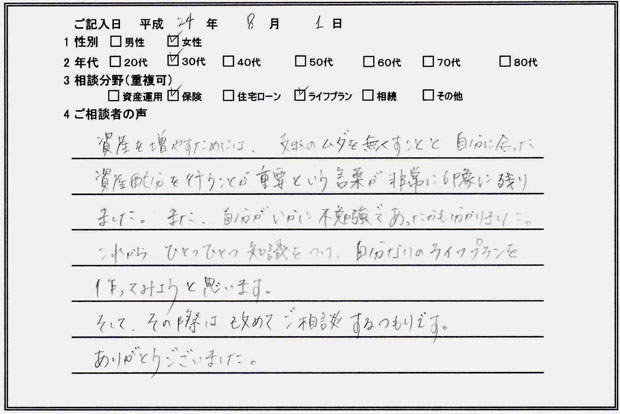 ご記入日 平成 24 年 8 月 1 日
1 性別 □男性 ☑女性
2 年代 □20代 ☑30代 □40代 □50代 □60代 □70代 □80代
3 相談分野(重複可)
□資産運用 ☑保険 □住宅ローン ☑ライフプラン □相続 □その他
4 ご相談者の声
資産を増やすためには、支出のムダを無くすことと 自分に合った
資産配分を行うことが重要という言葉が非常に印象に残り
ました。また、自分がいかに不勉強であったかも分かりました。
これから ひとつひとつ 知識をつけ、自分なりのライフプランを
作ってみようと思います。
そして、その際は 改めて ご相談するつもりです。
ありがとうございました。